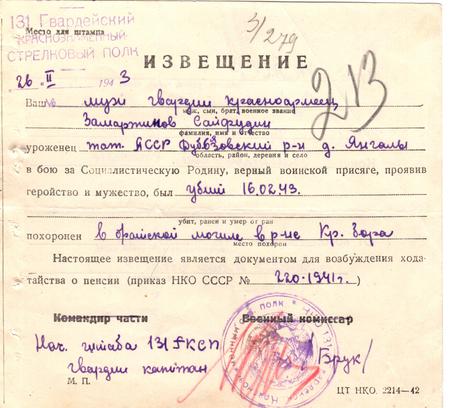 131 Гвардейский
Место для штампа
КРАСНОЗНАМЕННЫЙ
СТРЕЛКОВЫЙ ПОЛК
3/279
ИЗВЕЩЕНИЕ
26 II 1943
213
Ваш муж гвардии красноармеец
муж, сын, брат, военное звание
Сайфудин
фамилия, имя и отчество
уроженец тат. АССР р-н д.
область, район, деревня и село
в бою за Социалистическую Родину, верный воинской присяге, проявив
геройство и мужество, был убит 16.02.43.
убит, ранен и умер от ран
похоронен в братской могиле в р-не Кр. бора
место похорон
Настоящее извещение является документом для возбуждения хода-
тайства о пенсии (приказ НКО СССР № 220-1941г.)
Командир части Военный комиссар
Нач. штаба 131 ГКСП
гвардии капитан Брук/
М. П.
ЦТ НКО. 2214—42